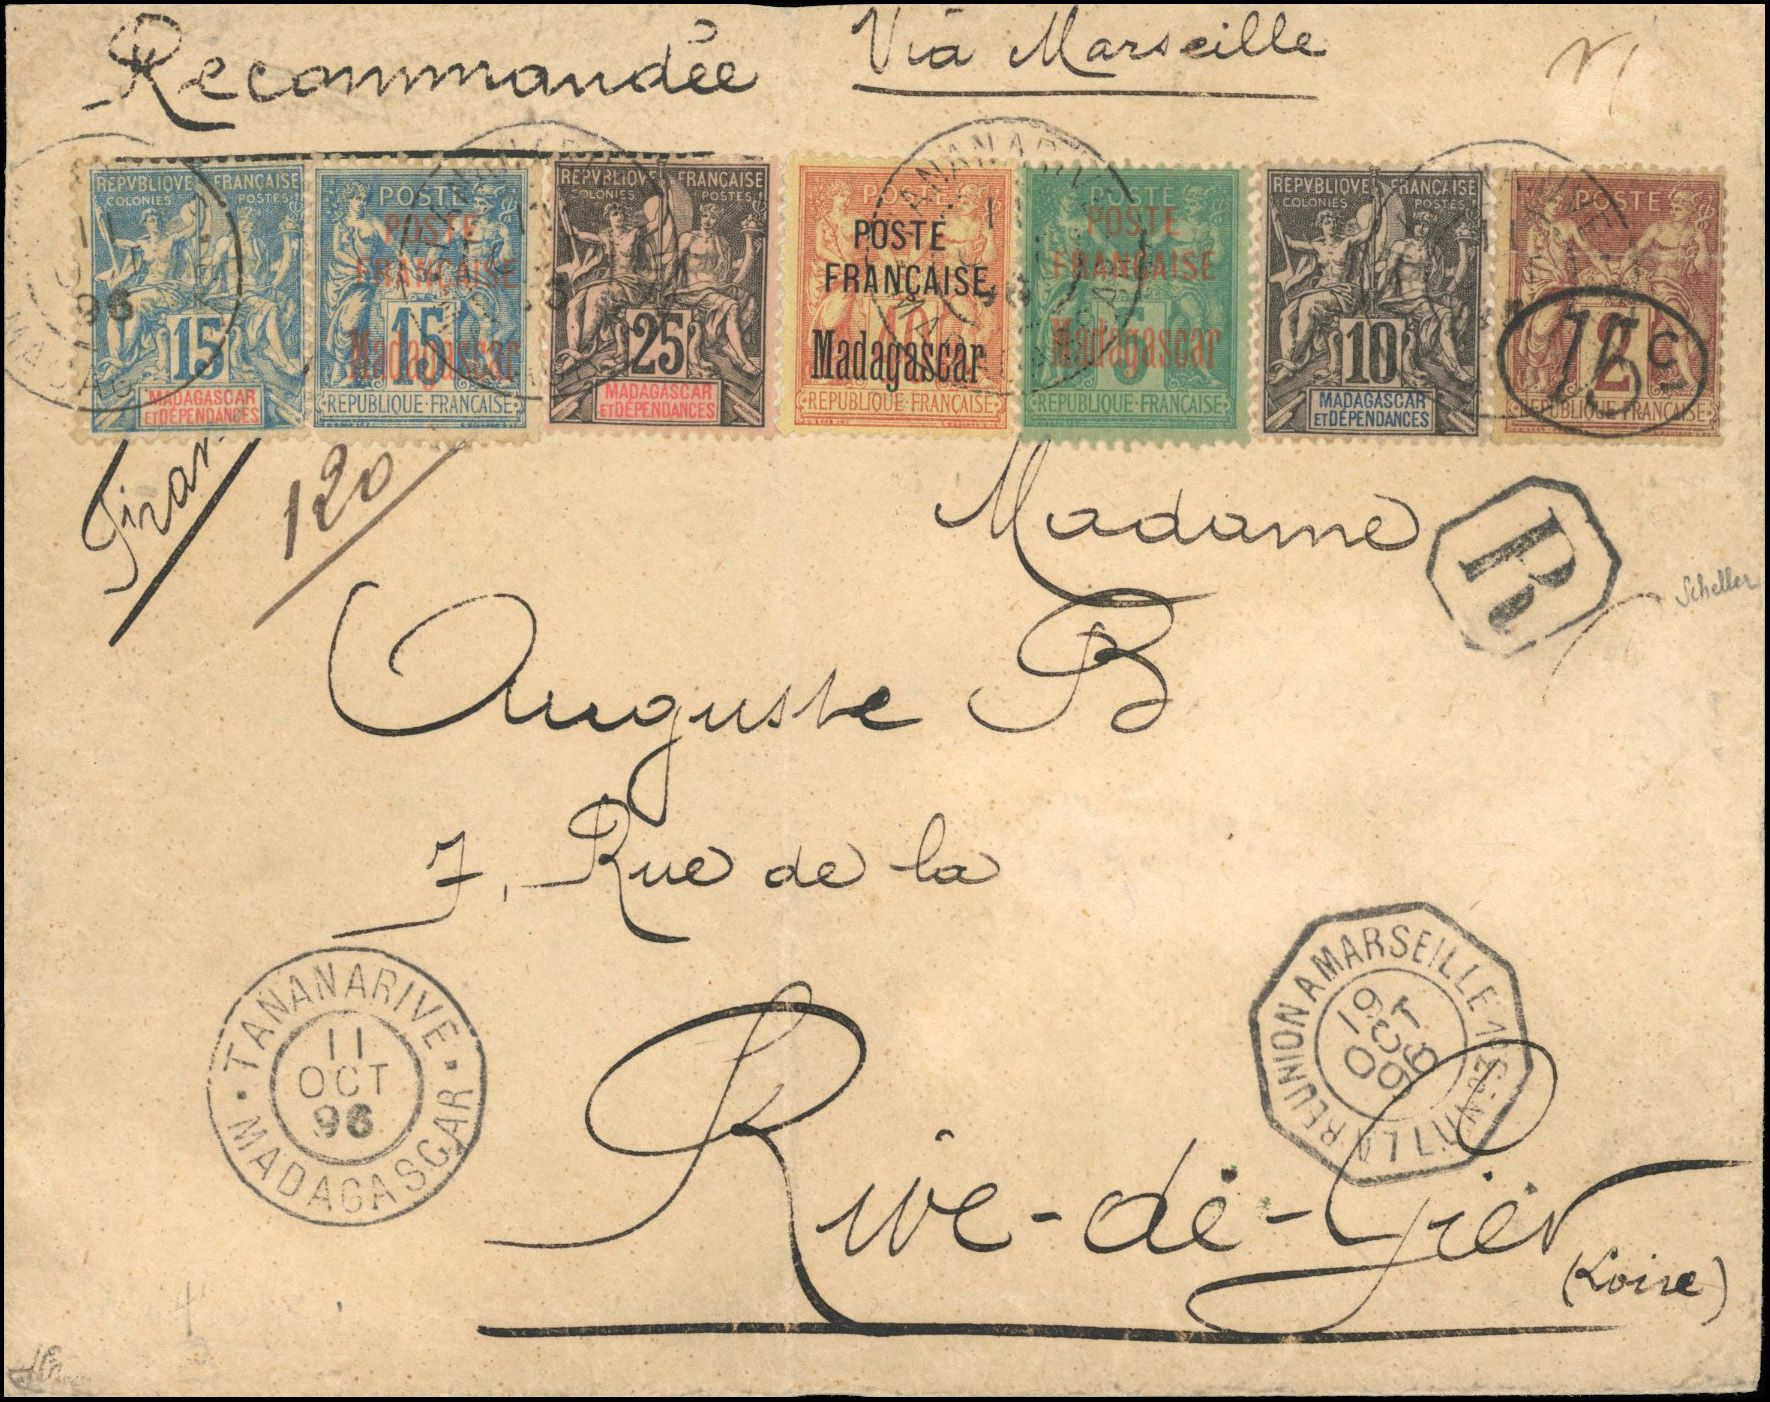 Recommandée Via Marseille
REPVBLIQVE FRANÇAISE
COLONIES POSTES
15
MADAGASCAR
ET DÉPENDANCES
POSTE
POSTE
FRANÇAISE
15
Madagascar
REPUBLIQUE FRANÇAISE
REPVBLIQVE FRANÇAISE
COLONIES POSTES
25
MADAGASCAR
ET DÉPENDANCES
POSTE
POSTE
FRANÇAISE
40
Madagascar
REPUBLIQUE FRANÇAISE
POSTE
POSTE
FRANÇAISE
5
Madagascar
REPUBLIQUE FRANÇAISE
REPVBLIQVE FRANÇAISE
COLONIES POSTES
10
MADAGASCAR
ET DÉPENDANCES
POSTE
15 c.
2
REPUBLIQUE FRANÇAISE
120
Madame
R
Scheller
Auguste B
7, Rue de la
TANANARIVE
11
OCT
96
MADAGASCAR
LA REUNION A MARSEILLE
19
OCT
96
L.V.N°3
Rive-de-Gier
(Loire)